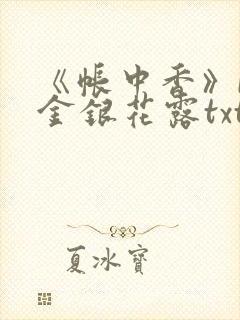 《帐中香》
金银花露txt
夏冰寶